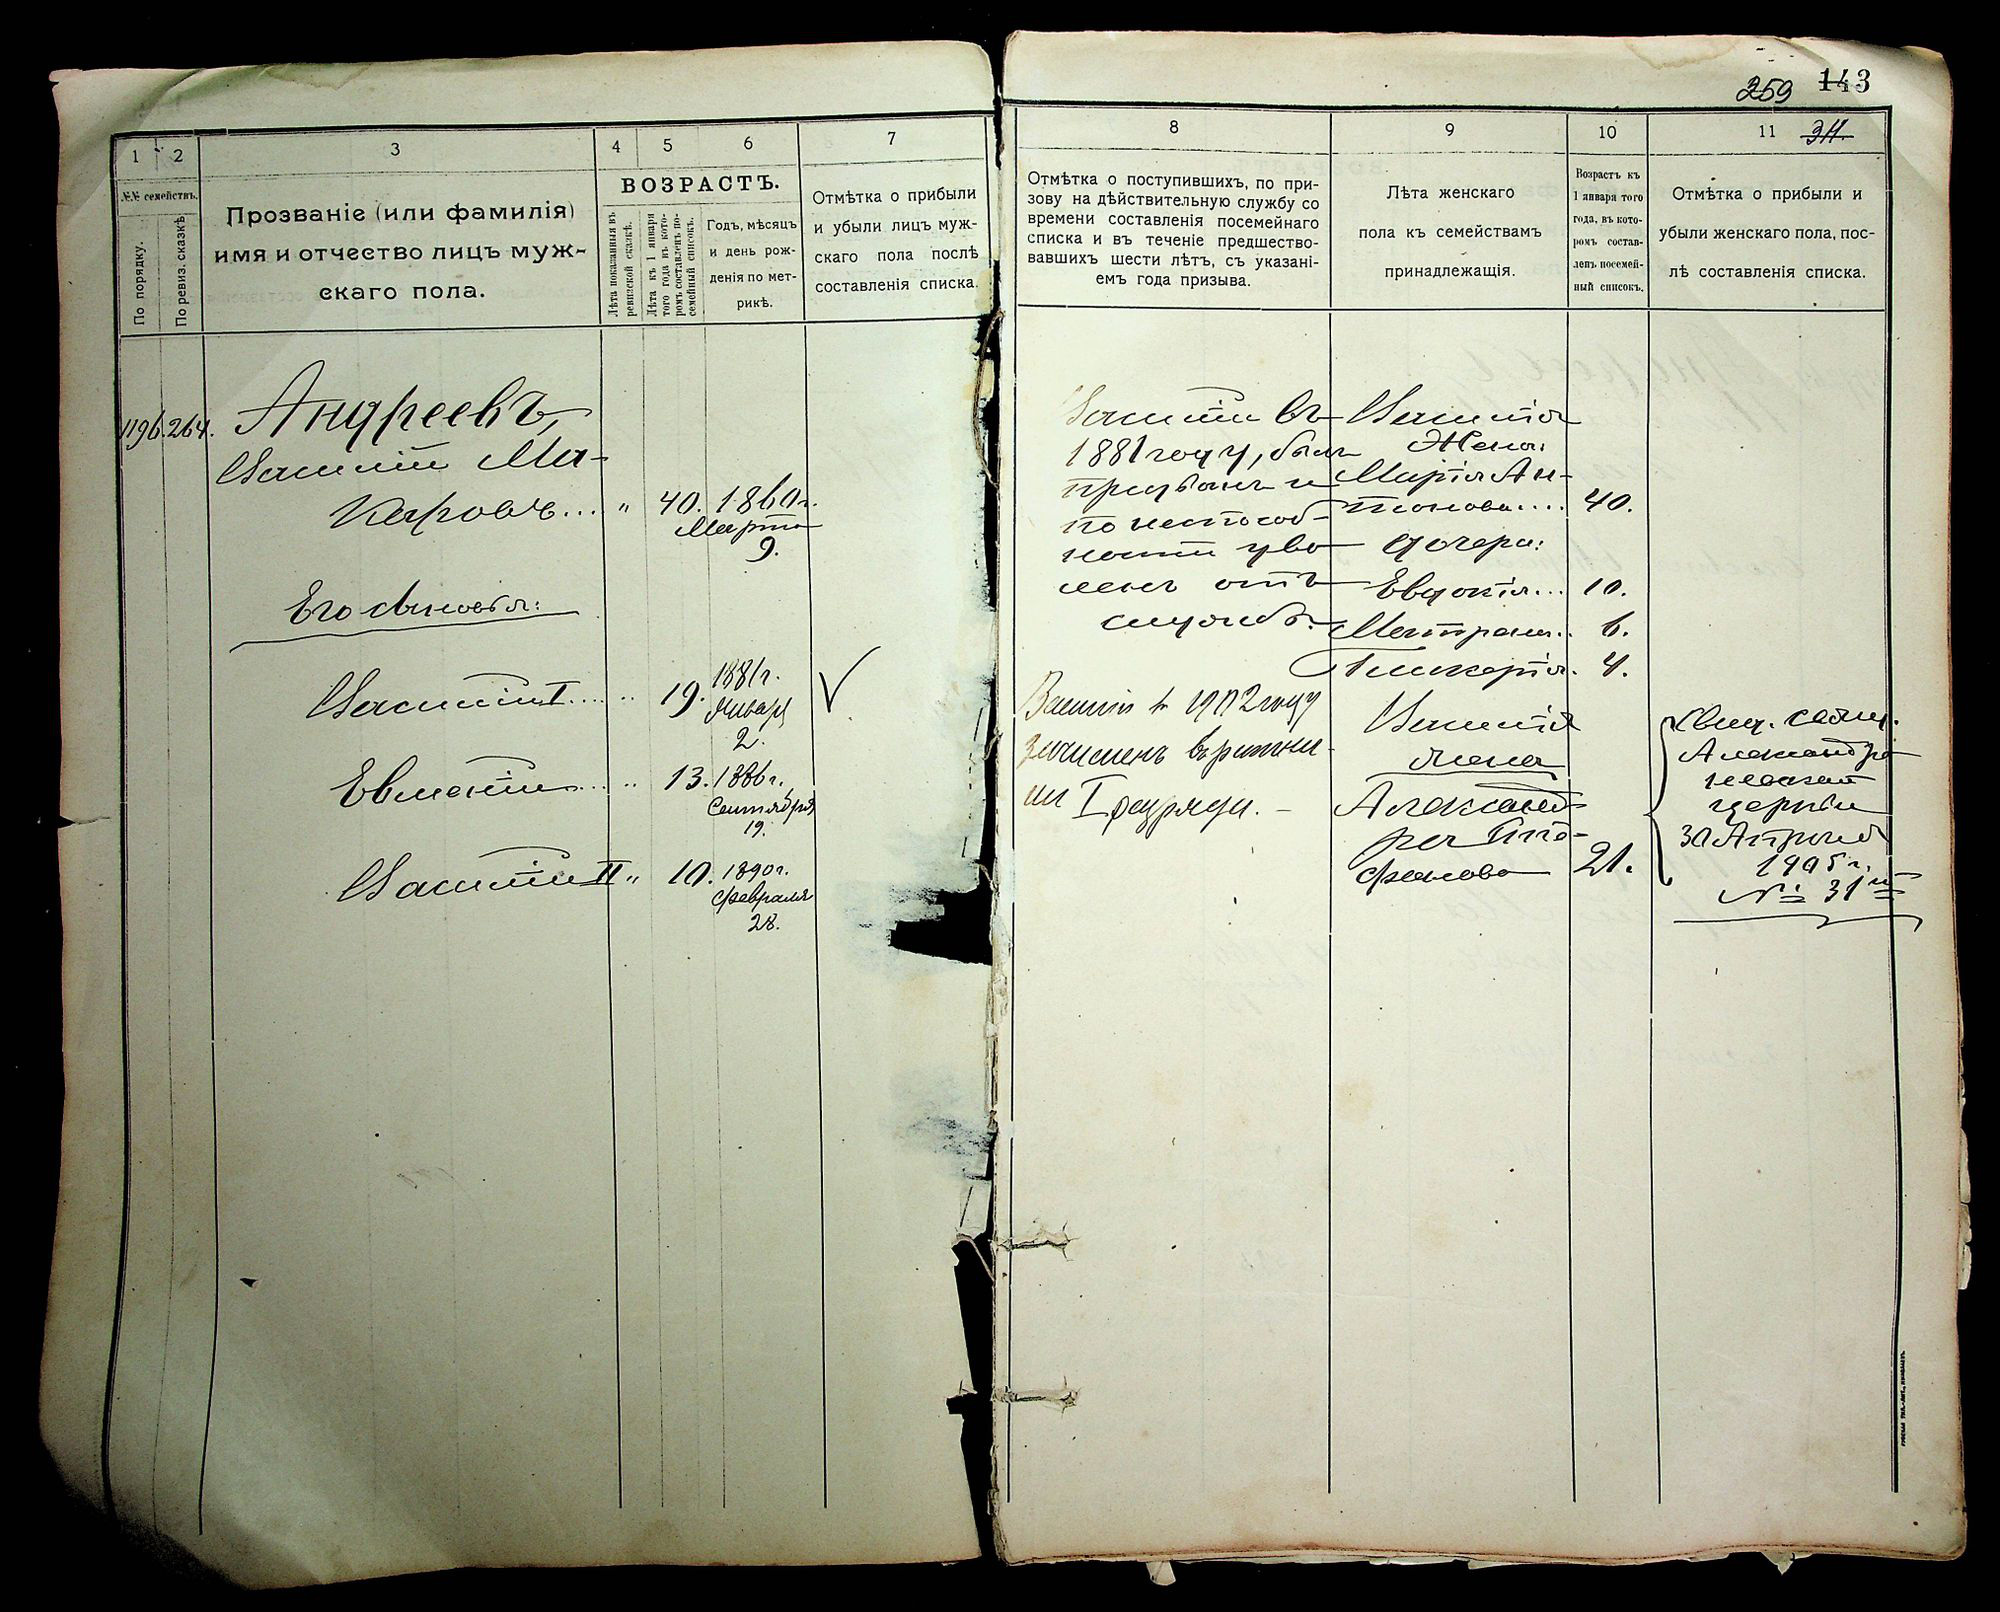 259 143
1
2
3
4
5
6
7
№№ семействъ.
По порядку.
По ревиз. сказкѣ
Прозваніе (или фамилія)
имя и отчество лицъ муж-
скаго пола.
ВОЗРАСТЪ.
Лѣта показанныя въ
ревизской сказкѣ.
Лѣта къ 1 января
того года въ кото-
ромъ составленъ по-
семейный списокъ.
Годъ, мѣсяцъ
и день рож-
денія по мет-
рикѣ.
Отмѣтка о прибыли
и убыли лицъ муж-
скаго пола послѣ
составленія списка.
1196. 264. Андреевъ,
Василій Ма-
каровъ... " 40. 1860 г.
Марта
9.
Его сыновья:
Василій I.... " 19. 1881 г.
Января
2.
Евменій.... " 13. 1886 г.,
Сентября
19.
Василій II " 10. 1890 г.
Февраля
28.
8
9
10
11 311.
Отмѣтка о поступившихъ, по при-
зову на дѣйствительную службу со
времени составленія посемейнаго
списка и въ теченіе предшество-
вавшихъ шести лѣтъ, съ указані-
емъ года призыва.
Лѣта женскаго
пола къ семействамъ
принадлежащія.
Возрастъ къ
1 января того
года, въ кото-
ромъ состав-
ленъ посемей-
ный списокъ.
Отмѣтка о прибыли и
убыли женскаго пола, пос-
лѣ составленія списка.
Василій въ
1881 году, былъ
призванъ и
по неспособ-
ности уво
ленъ отъ
службы.
Василія
Жена:
Марія Ан-
тонова.... 40.
Дочери:
Евдокія... 10.
Матрена.. 6.
Гликерія. 4.
Василій въ 1902 году
зачисленъ въ ратни-
ки I разряда. –
Василія
жена
Александ
ра
фанова 21.
Александро
невской
церкви
30 Апреля
1905 г.
№ 31